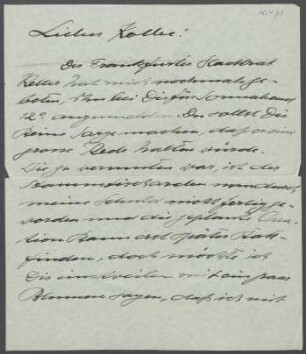 Lieber Koller!
Der Frankfurter Stadtrat
Keller hat mich nochmals ge-
beten, ihn bei Dir für Sonnabend
12° anzumelden. Du sollst Dir
keine Sorge machen, daß er eine
grosse Rede halten würde.
Wie zu vermuten war, ist das
nicht fertig ge-
worden und die geplante Ova-
tion kann erst später statt-
finden, doch möchte ich
Dir einstweilen mit ein paar
Blumen sagen, daß ich mit